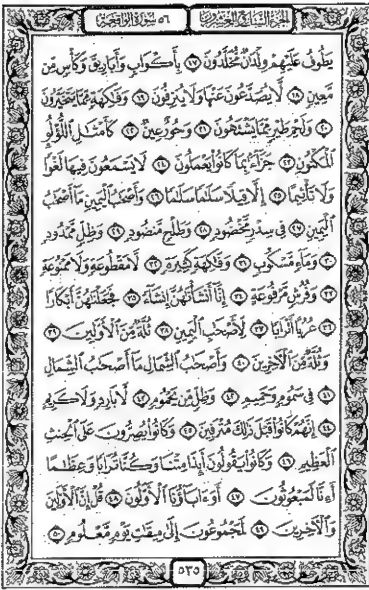 الجزء السابع والعشرون ٥٦ سورة الواقعة
يَطُوفُ عَلَيْهِمْ وِلْدَٰنٌ مُّخَلَّدُونَ ١٧ بِأَكْوَابٍ وَأَبَارِيقَ وَكَأْسٍ مِّن
مَّعِينٍ ١٨ لَّا يُصَدَّعُونَ عَنْهَا وَلَا يُنزِفُونَ ١٩ وَفَٰكِهَةٍ مِّمَّا يَتَخَيَّرُونَ
٢٠ وَلَحْمِ طَيْرٍ مِّمَّا يَشْتَهُونَ ٢١ وَحُورٌ عِينٌ ٢٢ كَأَمْثَٰلِ ٱللُّؤْلُؤِ
ٱلْمَكْنُونِ ٢٣ جَزَآءًۢ بِمَا كَانُوا۟ يَعْمَلُونَ ٢٤ لَا يَسْمَعُونَ فِيهَا لَغْوًا
وَلَا تَأْثِيمًا ٢٥ إِلَّا قِيلًا سَلَٰمًا سَلَٰمًا ٢٦ وَأَصْحَٰبُ ٱلْيَمِينِ مَآ أَصْحَٰبُ
ٱلْيَمِينِ ٢٧ فِى سِدْرٍ مَّخْضُودٍ ٢٨ وَطَلْحٍ مَّنضُودٍ ٢٩ وَظِلٍّ مَّمْدُودٍ
٣٠ وَمَآءٍ مَّسْكُوبٍ ٣١ وَفَٰكِهَةٍ كَثِيرَةٍ ٣٢ لَّا مَقْطُوعَةٍ وَلَا مَمْنُوعَةٍ
٣٣ وَفُرُشٍ مَّرْفُوعَةٍ ٣٤ إِنَّآ أَنشَأْنَٰهُنَّ إِنشَآءً ٣٥ فَجَعَلْنَٰهُنَّ أَبْكَارًا
٣٦ عُرُبًا أَتْرَابًا ٣٧ لِّأَصْحَٰبِ ٱلْيَمِينِ ٣٨ ثُلَّةٌ مِّنَ ٱلْأَوَّلِينَ ٣٩
وَثُلَّةٌ مِّنَ ٱلْءَاخِرِينَ ٤٠ وَأَصْحَٰبُ ٱلشِّمَالِ مَآ أَصْحَٰبُ ٱلشِّمَالِ
٤١ فِى سَمُومٍ وَحَمِيمٍ ٤٢ وَظِلٍّ مِّن يَحْمُومٍ ٤٣ لَّا بَارِدٍ وَلَا كَرِيمٍ
٤٤ إِنَّهُمْ كَانُوا۟ قَبْلَ ذَٰلِكَ مُتْرَفِينَ ٤٥ وَكَانُوا۟ يُصِرُّونَ عَلَى ٱلْحِنثِ
ٱلْعَظِيمِ ٤٦ وَكَانُوا۟ يَقُولُونَ أَئِذَا مِتْنَا وَكُنَّا تُرَابًا وَعِظَٰمًا
أَءِنَّا لَمَبْعُوثُونَ ٤٧ أَوَءَابَآؤُنَا ٱلْأَوَّلُونَ ٤٨ قُلْ إِنَّ ٱلْأَوَّلِينَ
وَٱلْءَاخِرِينَ ٤٩ لَمَجْمُوعُونَ إِلَىٰ مِيقَٰتِ يَوْمٍ مَّعْلُومٍ ٥٠
٥٣٥